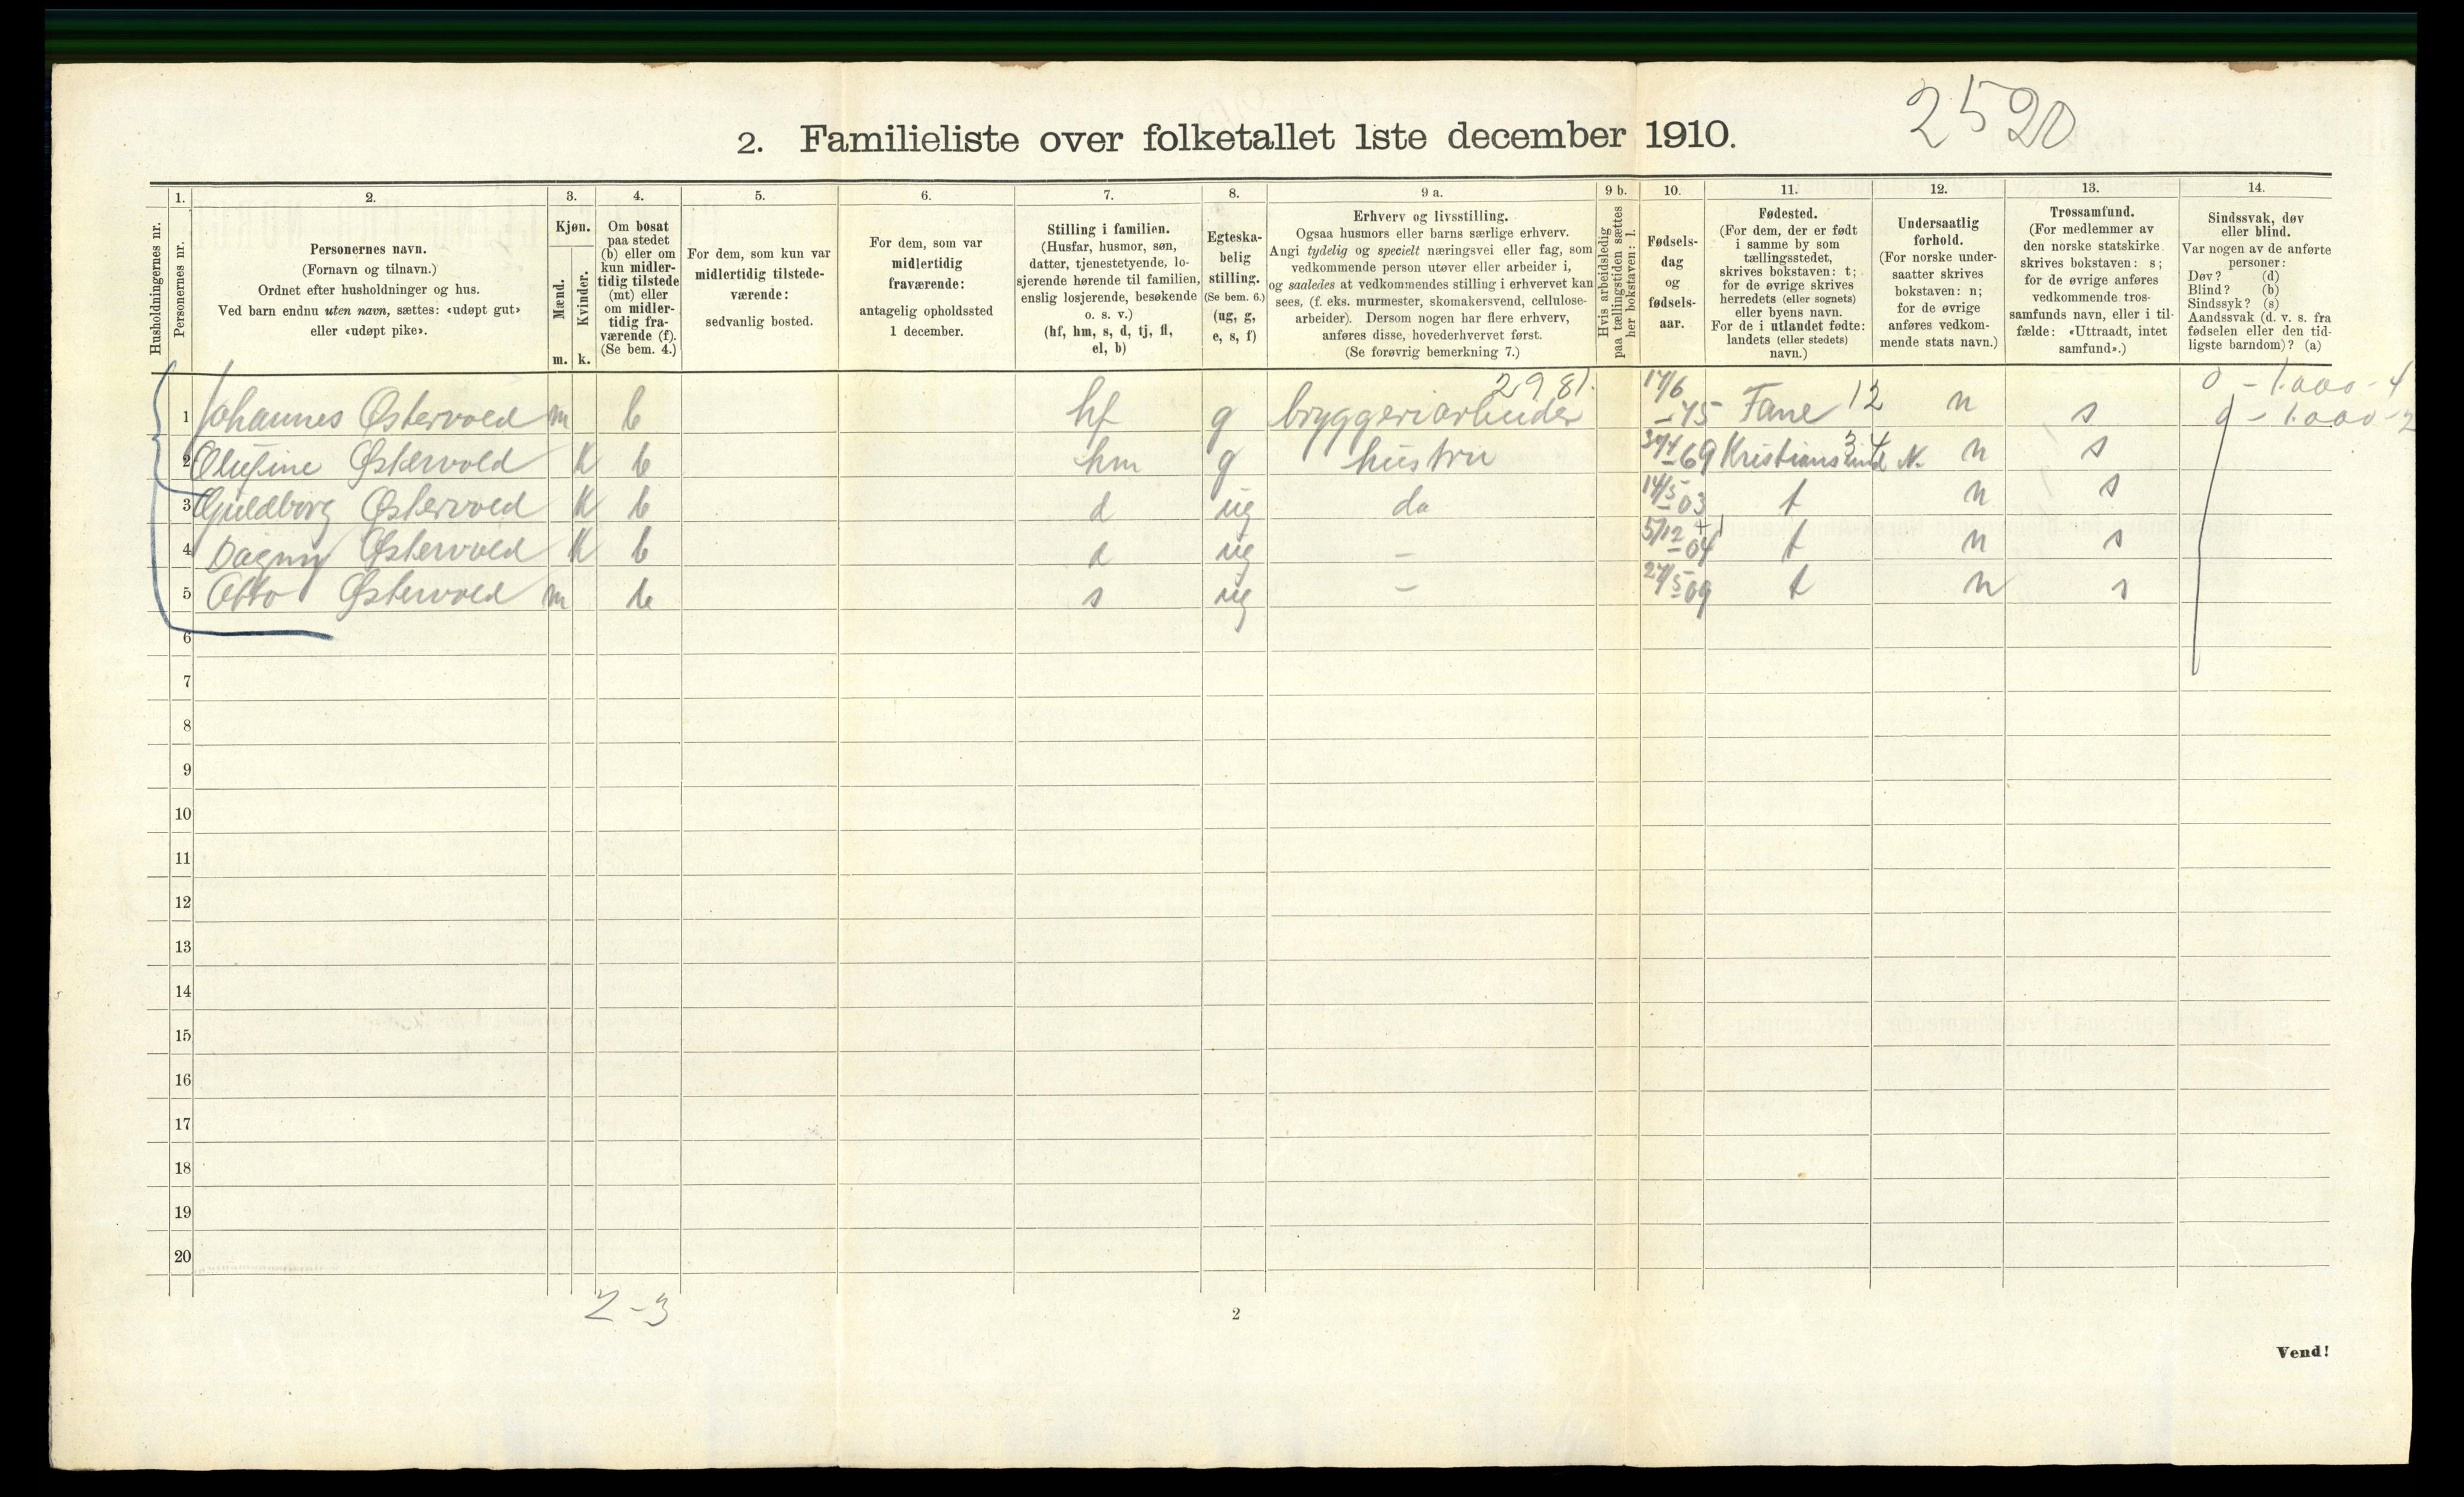 2520
2. Familieliste over folketallet 1ste december 1910.
Husholdningernes nr.
1. Personernes nr.
2. Personernes navn. (Fornavn og tilnavn.) Ordnet efter husholdninger og hus. Ved barn endnu uten navn, sættes: «udøpt gut» eller «udøpt pike».
3. Kjøn. Mænd. m. Kvinder. k.
4. Om bosat paa stedet (b) eller om kun midlertidig tilstede (mt) eller om midlertidig fraværende (f). (Se bem. 4.)
5. For dem, som kun var midlertidig tilstedeværende: sedvanlig bosted.
6. For dem, som var midlertidig fraværende: antagelig opholdssted 1 december.
7. Stilling i familien. (Husfar, husmor, søn, datter, tjenestetyende, losjerende hørende til familien, enslig losjerende, besøkende o. s. v.) (hf, hm, s, d, tj, fl, el, b)
8. Egteskabelig stilling. (Se bem. 6.) (ug, g, e, s, f)
9 a. Erhverv og livsstilling. Ogsaa husmors eller barns særlige erhverv. Angi tydelig og specielt næringsvei eller fag, som vedkommende person utøver eller arbeider i, og saaledes at vedkommendes stilling i erhvervet kan sees, (f. eks. murmester, skomakersvend, cellulosearbeider). Dersom nogen har flere erhverv, anføres disse, hovederhvervet først. (Se forøvrig bemerkning 7.)
9 b. Hvis arbeidsledig paa tællingstiden sættes her bokstaven: l.
10. Fødselsdag og fødselsaar.
11. Fødested. (For dem, der er født i samme by som tællingsstedet, skrives bokstaven: t; for de øvrige skrives herredets (eller sognets) eller byens navn. For de i utlandet fødte: landets (eller stedets) navn.)
12. Undersaatlig forhold. (For norske undersaatter skrives bokstaven: n; for de øvrige anføres vedkommende stats navn.)
13. Trossamfund. (For medlemmer av den norske statskirke skrives bokstaven: s; for de øvrige anføres vedkommende trossamfunds navn, eller i tilfælde: «Uttraadt, intet samfund».)
14. Sindssvak, døv eller blind. Var nogen av de anførte personer: Døv? (d) Blind? (b) Sindssyk? (s) Aandssvak (d. v. s. fra fødselen eller den tidligste barndom)? (a)
2981. 0 - 1.000 - 4
1 Johannes Østervold m b hf g bryggeriarbeider 17/6 -75 Fane 12 n s 0 - 1.000 - 2
2 Olufine Østervold K b hm g hustru 30/4 -69 Kristiansund N. 34 n s
3 Guldborg Østervold K b d ug da 14/5 -03 t n s
4 Dagny Østervold K b d ug - 5/12 -04 t n s
5 Otto Østervold m b s ug - 27/5 -09 t n s
6
7
8
9
10
11
12
13
14
15
16
17
18
19
20
2-3
2
Vend!